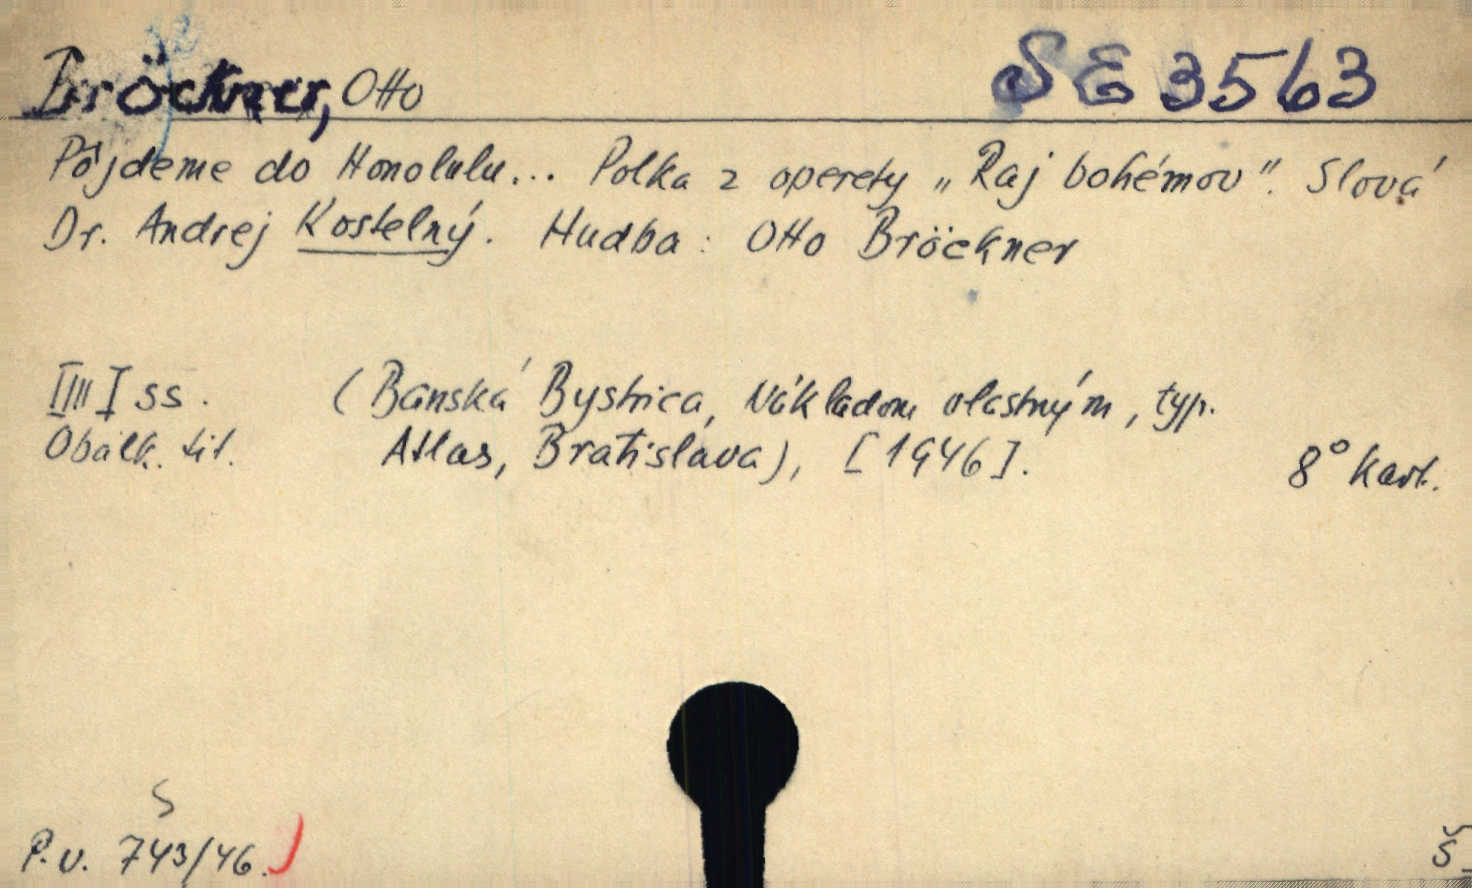 Bröckner, Otto
SE 3563
Pôjdeme do Honolulu... Polka z operety „Raj bohémov". Slová
Dr. Andrej Kostelný. Hudba: Otto Bröckner
IIII ss. (Banská Bystrica, Nákladom vlastným, typ.
Obálk. tit. Atlas, Bratislava), [1946]. 8° kart.
S
P.v. 743/46.
Š